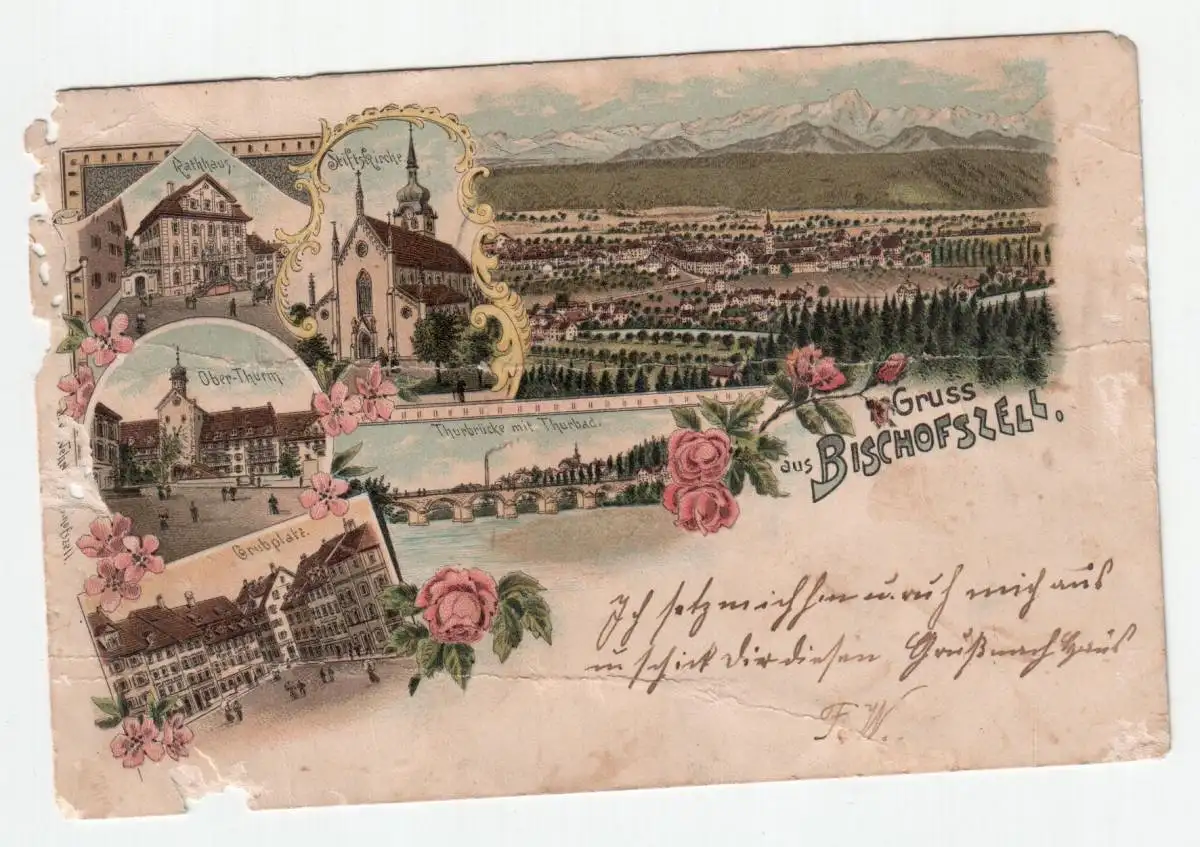 Rathhaus.
Stiftskirche.
Ober-Thurm.
Thurbrücke mit Thurbad.
Grubplatz.
Gruss
aus BISCHOFSZELL.
Ich setz mich hin u. ruh mich aus
u schick Dir diesen Gruß nach Haus
F. W.